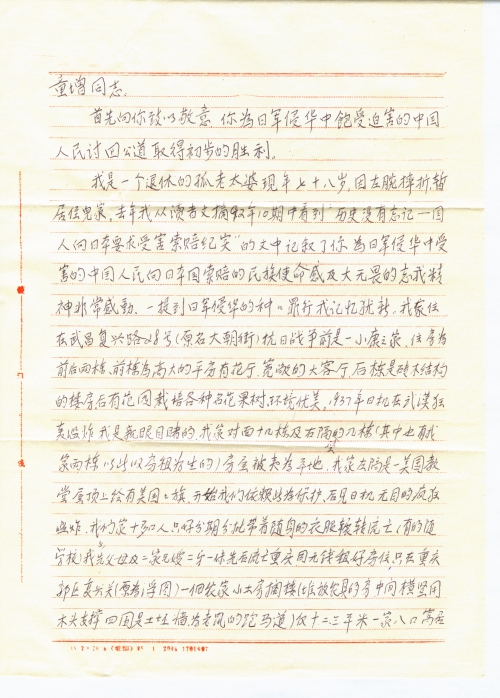 童增同志:
首先向你致以敬意.你为日军侵华中饱受迫害的中国
人民讨回公道取得初步的胜利。
我是一个退休的孤老太婆现年七十八岁,因左腕摔折,暂
居住儿家,去年我从读者文摘92年10期中看到"历史没有忘记—国
人向日本要求受害索赔纪实"的文中记叙了你为日军侵华中受
害的中国人民向日本国索赔的民族使命感及大无畏的忘我精
神非常感动.一提到日军侵华的种口罪行我记忆犹新,我家住
在武昌复兴路28号(原名大朝街)抗日战争前是一小康之家,住房为
前后两栋,前栋为高大的平房有花厅、宽敞的大客厅后栋是砖木结构
的楼房后有花园栽培各种名花果树,环境优美。1937年日机在武汉狂
轰滥炸我是亲眼目睹的,我家对面十几栋及右隔的几栋(其中也有我
家两栋以此以房租为生的)房屋被夷为平地,我家左隔是一美国教
堂屋顶上绘有美国口旗,开始我们依赖此为保护,后见日机无目的疯狂
轰炸,我们家十多口人只好分期分批带着随身的衣服辗转流亡(有的随
学校)我先父母及二家兄嫂一先后流亡重庆因无钱租好房住,只在重庆
郊区一个农家小土房搁楼(堆放农具的房中间横竖用
木头支撑四围是土墙)仅十二三平米一家八口寓居